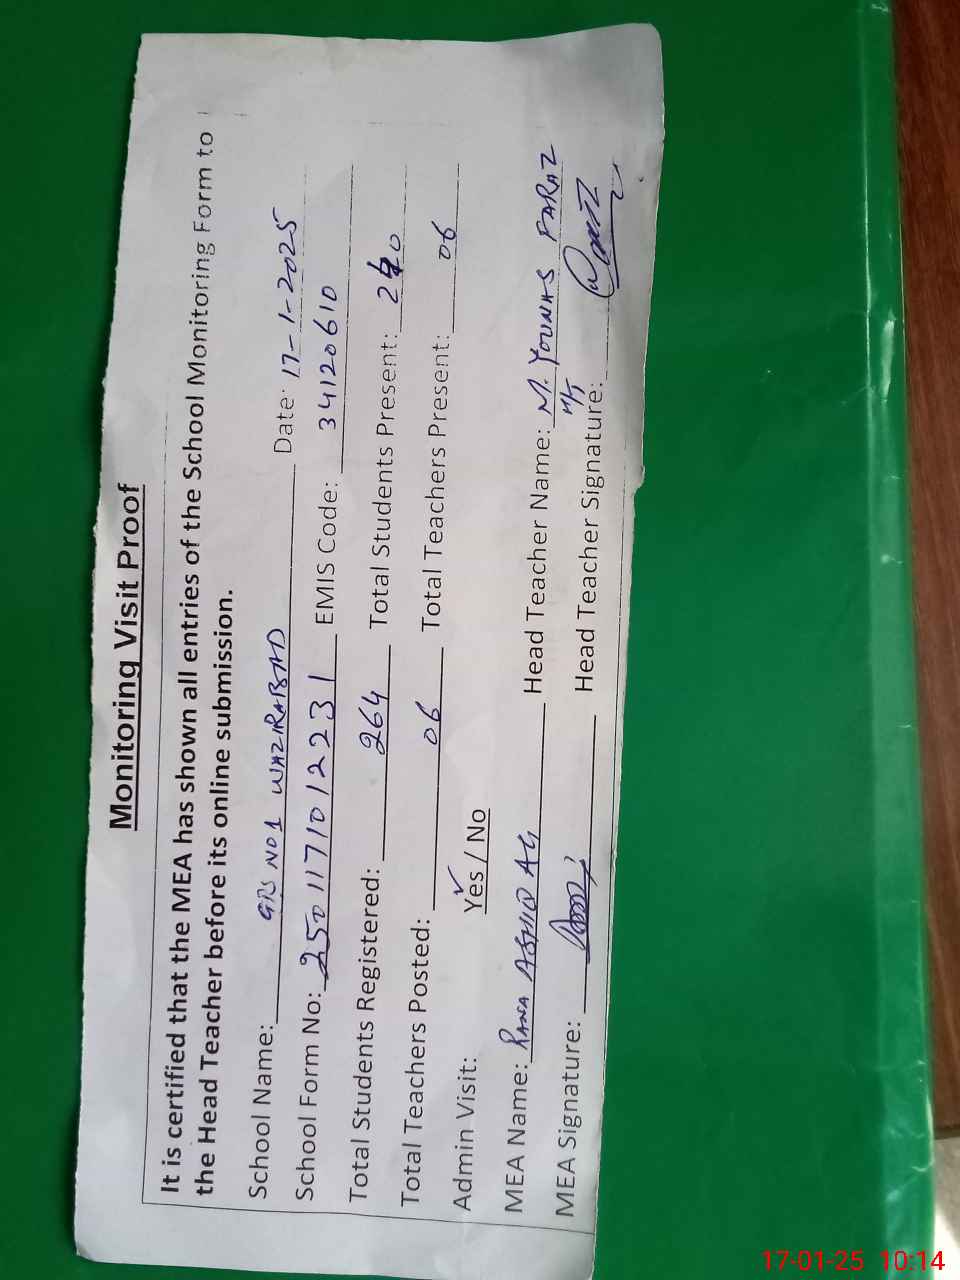 Monitoring Visit Proof
It is certified that the MEA has shown all entries of the School Monitoring Form to
the Head Teacher before its online submission.
School Name: GPS NO1 WAZIRABAD Date: 17-1-2025
School Form No: 2501171012231 EMIS Code: 34120610
Total Students Registered: 264 Total Students Present: 240
Total Teachers Posted: 06 Total Teachers Present: 06
Admin Visit: Yes / No
MEA Name: RANA Head Teacher Name: M. YOUNAS FARAZ
MEA Signature: Head Teacher Signature:
17-01-25 10:14